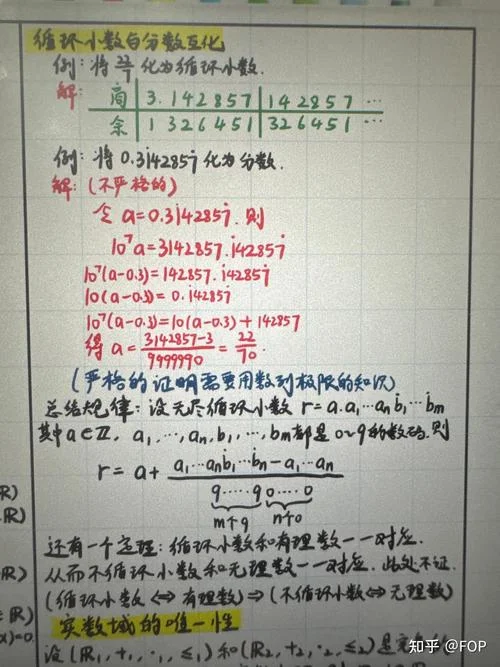 循环小数与分数互化
例:将22/7化为循环小数.
解: 商 3.142857 142857 …
余 1 326451 326451 …
例:将0.3̇142857̇化为分数.
解:(不严格的)
令a=0.31̇42857̇.则
10⁷a=3142857.1̇42857̇
10⁷(a-0.3)=142857.1̇42857̇
10(a-0.3)=0.1̇42857̇
10⁷(a-0.3)=10(a-0.3)+142857
得a=(3142857-3)/9999990=22/70.
(严格的证明需要用数列极限的知识)
总结规律:设无尽循环小数r=a.a₁…aₙḃ₁…ḃm
其中a∈Z, a₁,…,aₙ,b₁,…,bm都是0~9的数码.则
r=a+(a₁…aₙḃ₁…ḃₙ-a₁…aₙ)/(9……90……0)
m个9 n个0
还有一个定理:循环小数和有理数一一对应.
从而不循环小数和无理数一一对应.此处不证.
(循环小数⇔有理数)⇒(不循环小数⇔无理数)
实数域的唯一性
设(R₁,+₁,·₁,≤₁)和(R₂,+₂,·₂,≤₂)是完
R)
.R)
R)
∈R)
x)=0.
知乎 @FOP